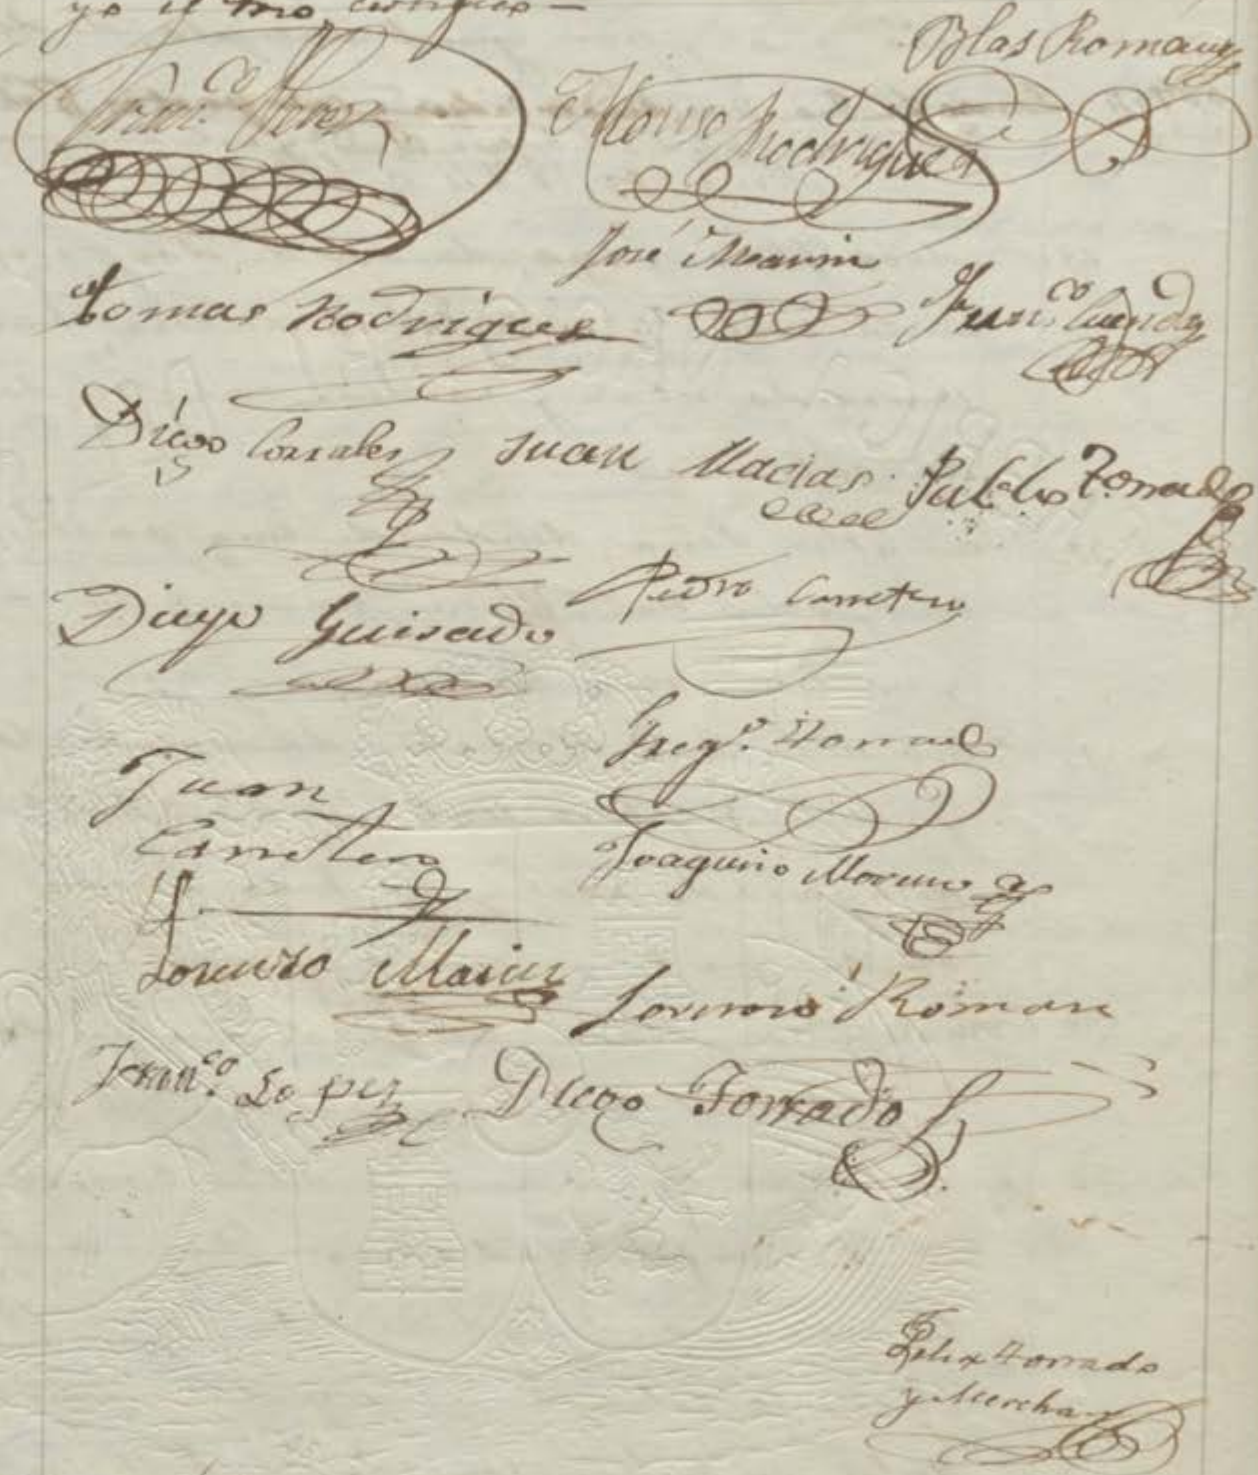 yo el
Blas Roman
Franco. Perez
Alonso Rodriguez
José Marin
tomas Rodriguez
Franco.
Diego Corrales
Juan Macias
Pablo Torrado
Diego Guisado
Pedro Carretero
Grego. Torrado
Juan
Carretero
Joaquino Moreno
Lorenzo Marin
Lorenzo Roman
Franco. Lopez
Diego Forrado
Felix Torrado
y Merchan